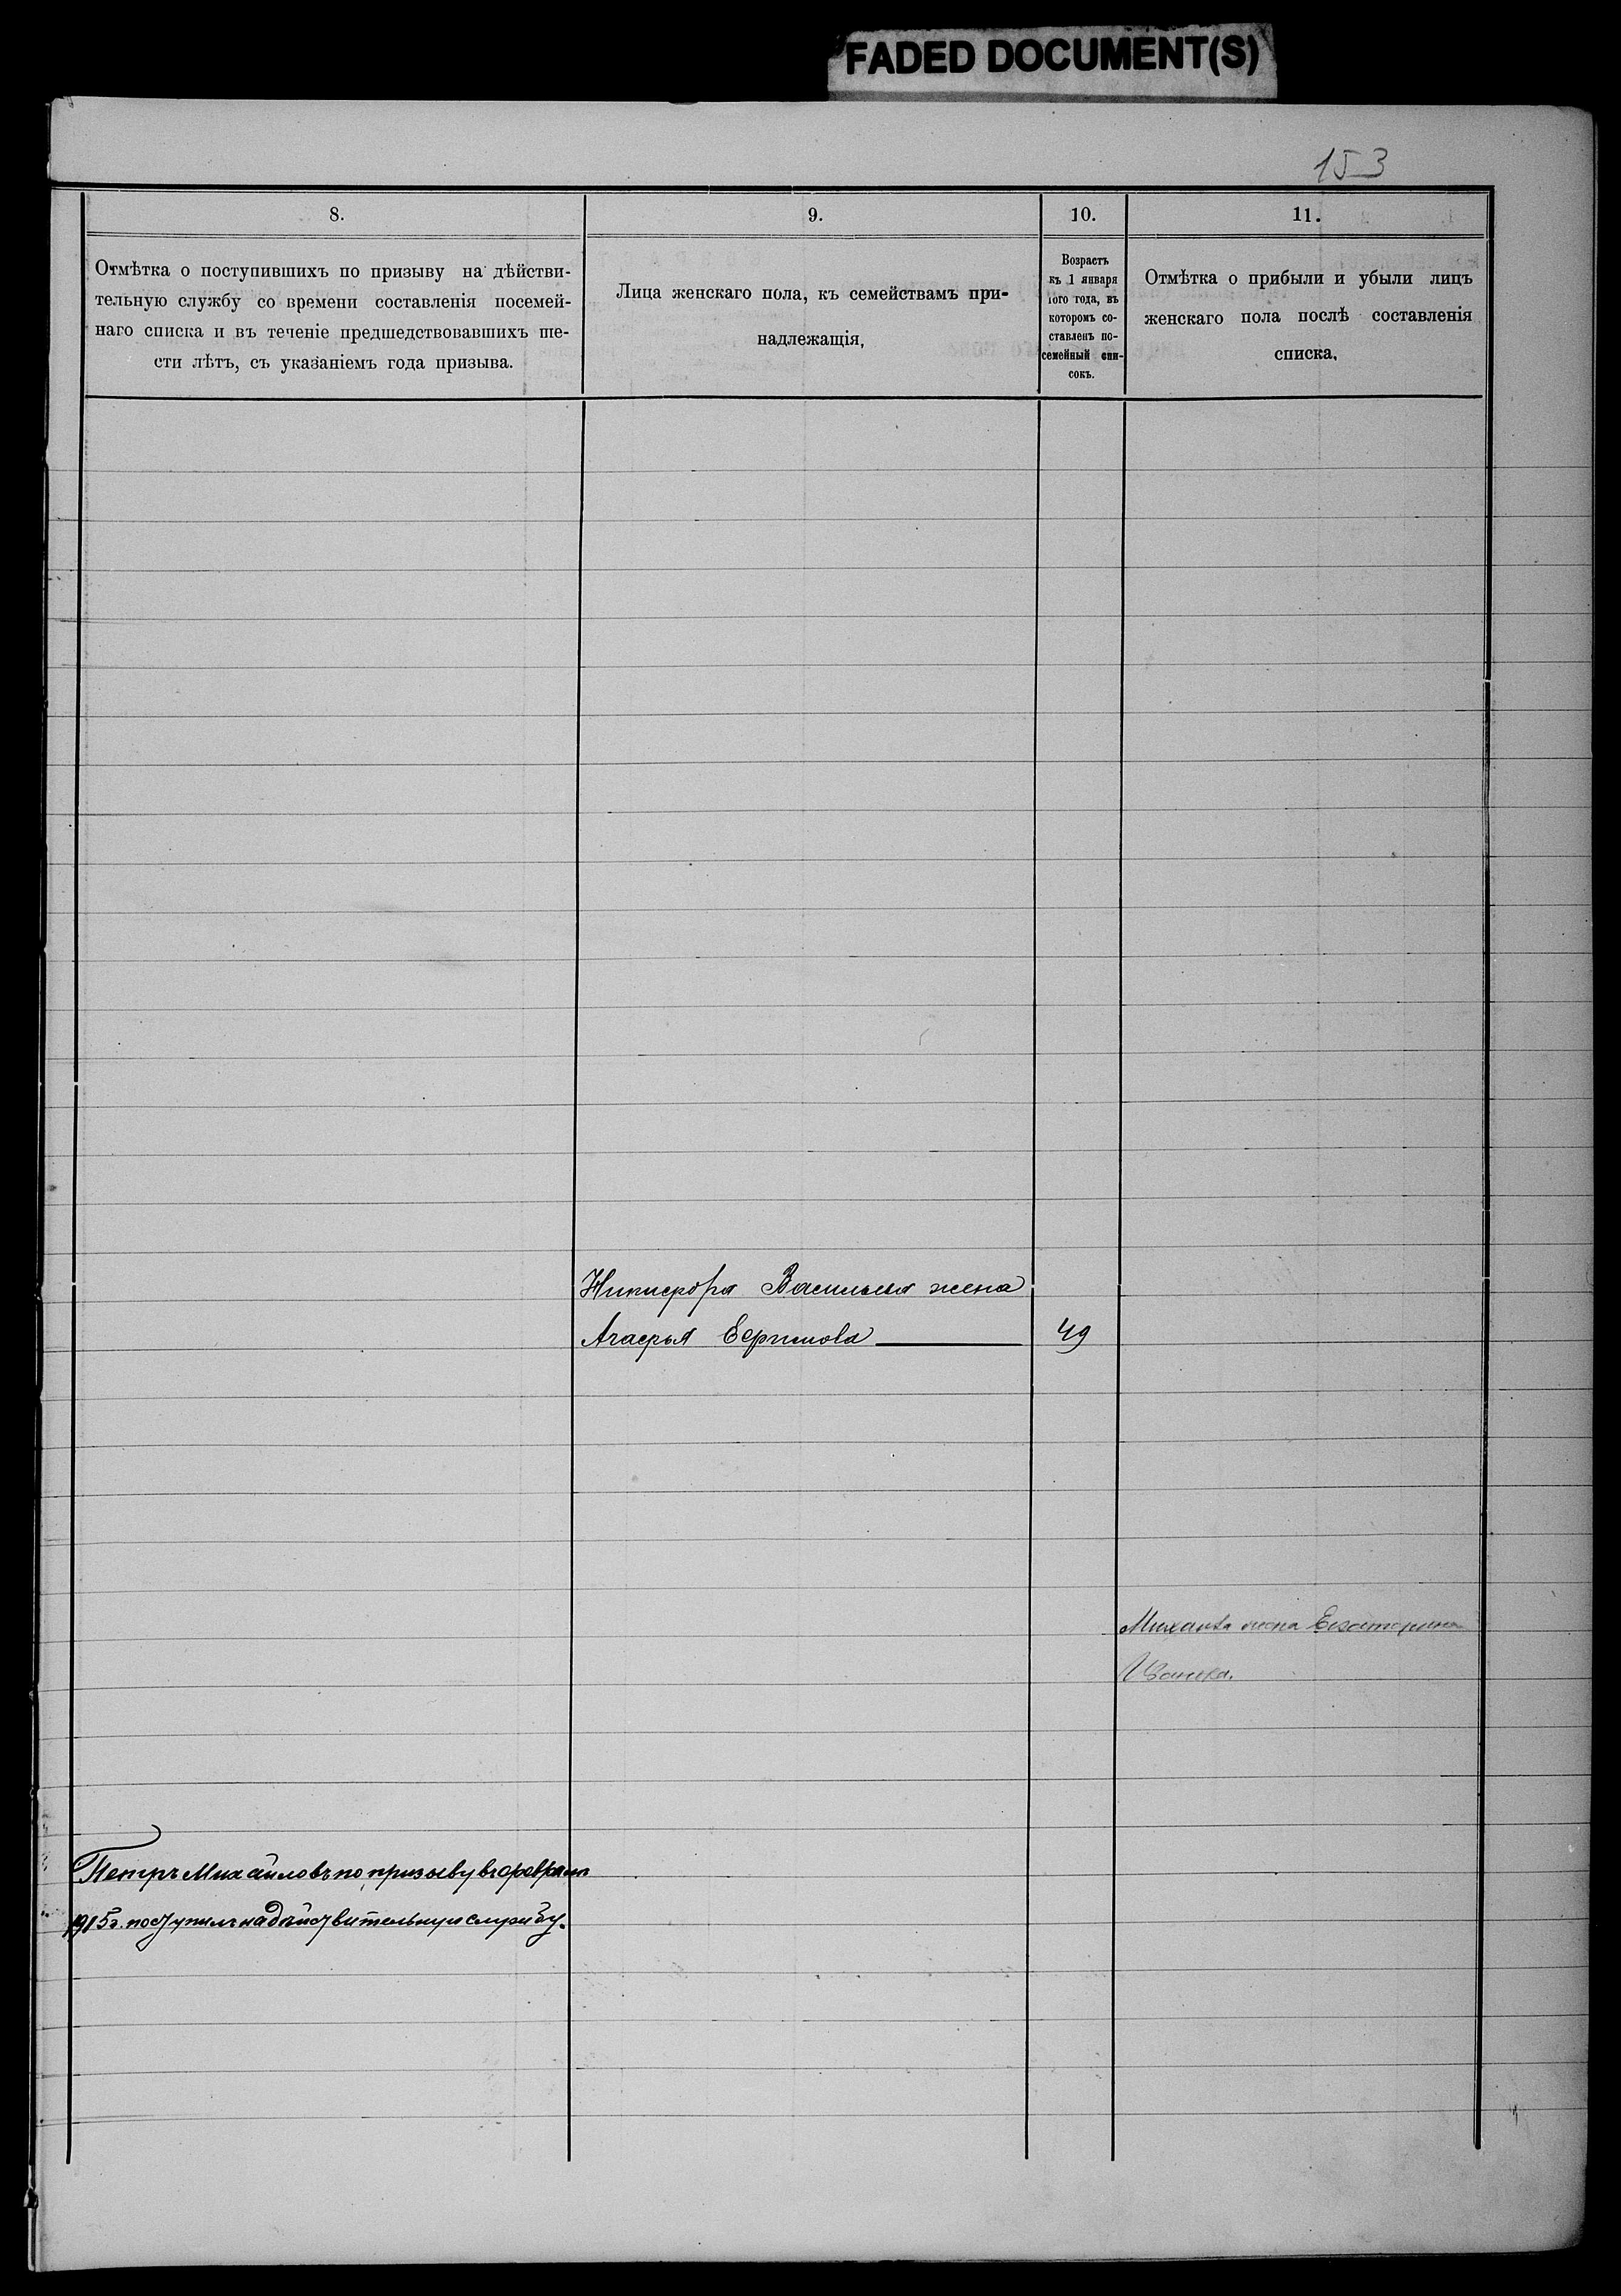 FADED DOCUMENT(S)
153
8.
9.
10.
11.
Отмѣтка о поступившихъ по призыву на дѣйстви-
тельную службу со времени составленія посемей-
наго списка и въ теченіе предшедствовавшихъ ше-
сти лѣтъ, съ указаніемъ года призыва.
Лица женскаго пола, къ семействамъ при-
надлежащія,
Возрастъ
къ 1 января
того года, въ
которомъ со-
ставленъ по-
семейный спи-
сокъ.
Отмѣтка о прибыли и убыли лицъ
женскаго пола послѣ составленія
списка,
Никифора Васильева жена
Агафья Ефимова 49
Михаила жена Екатерина
Петръ Михайловъ по призыву въ феврале
1915 г. поступилъ на дѣйствительную службу.